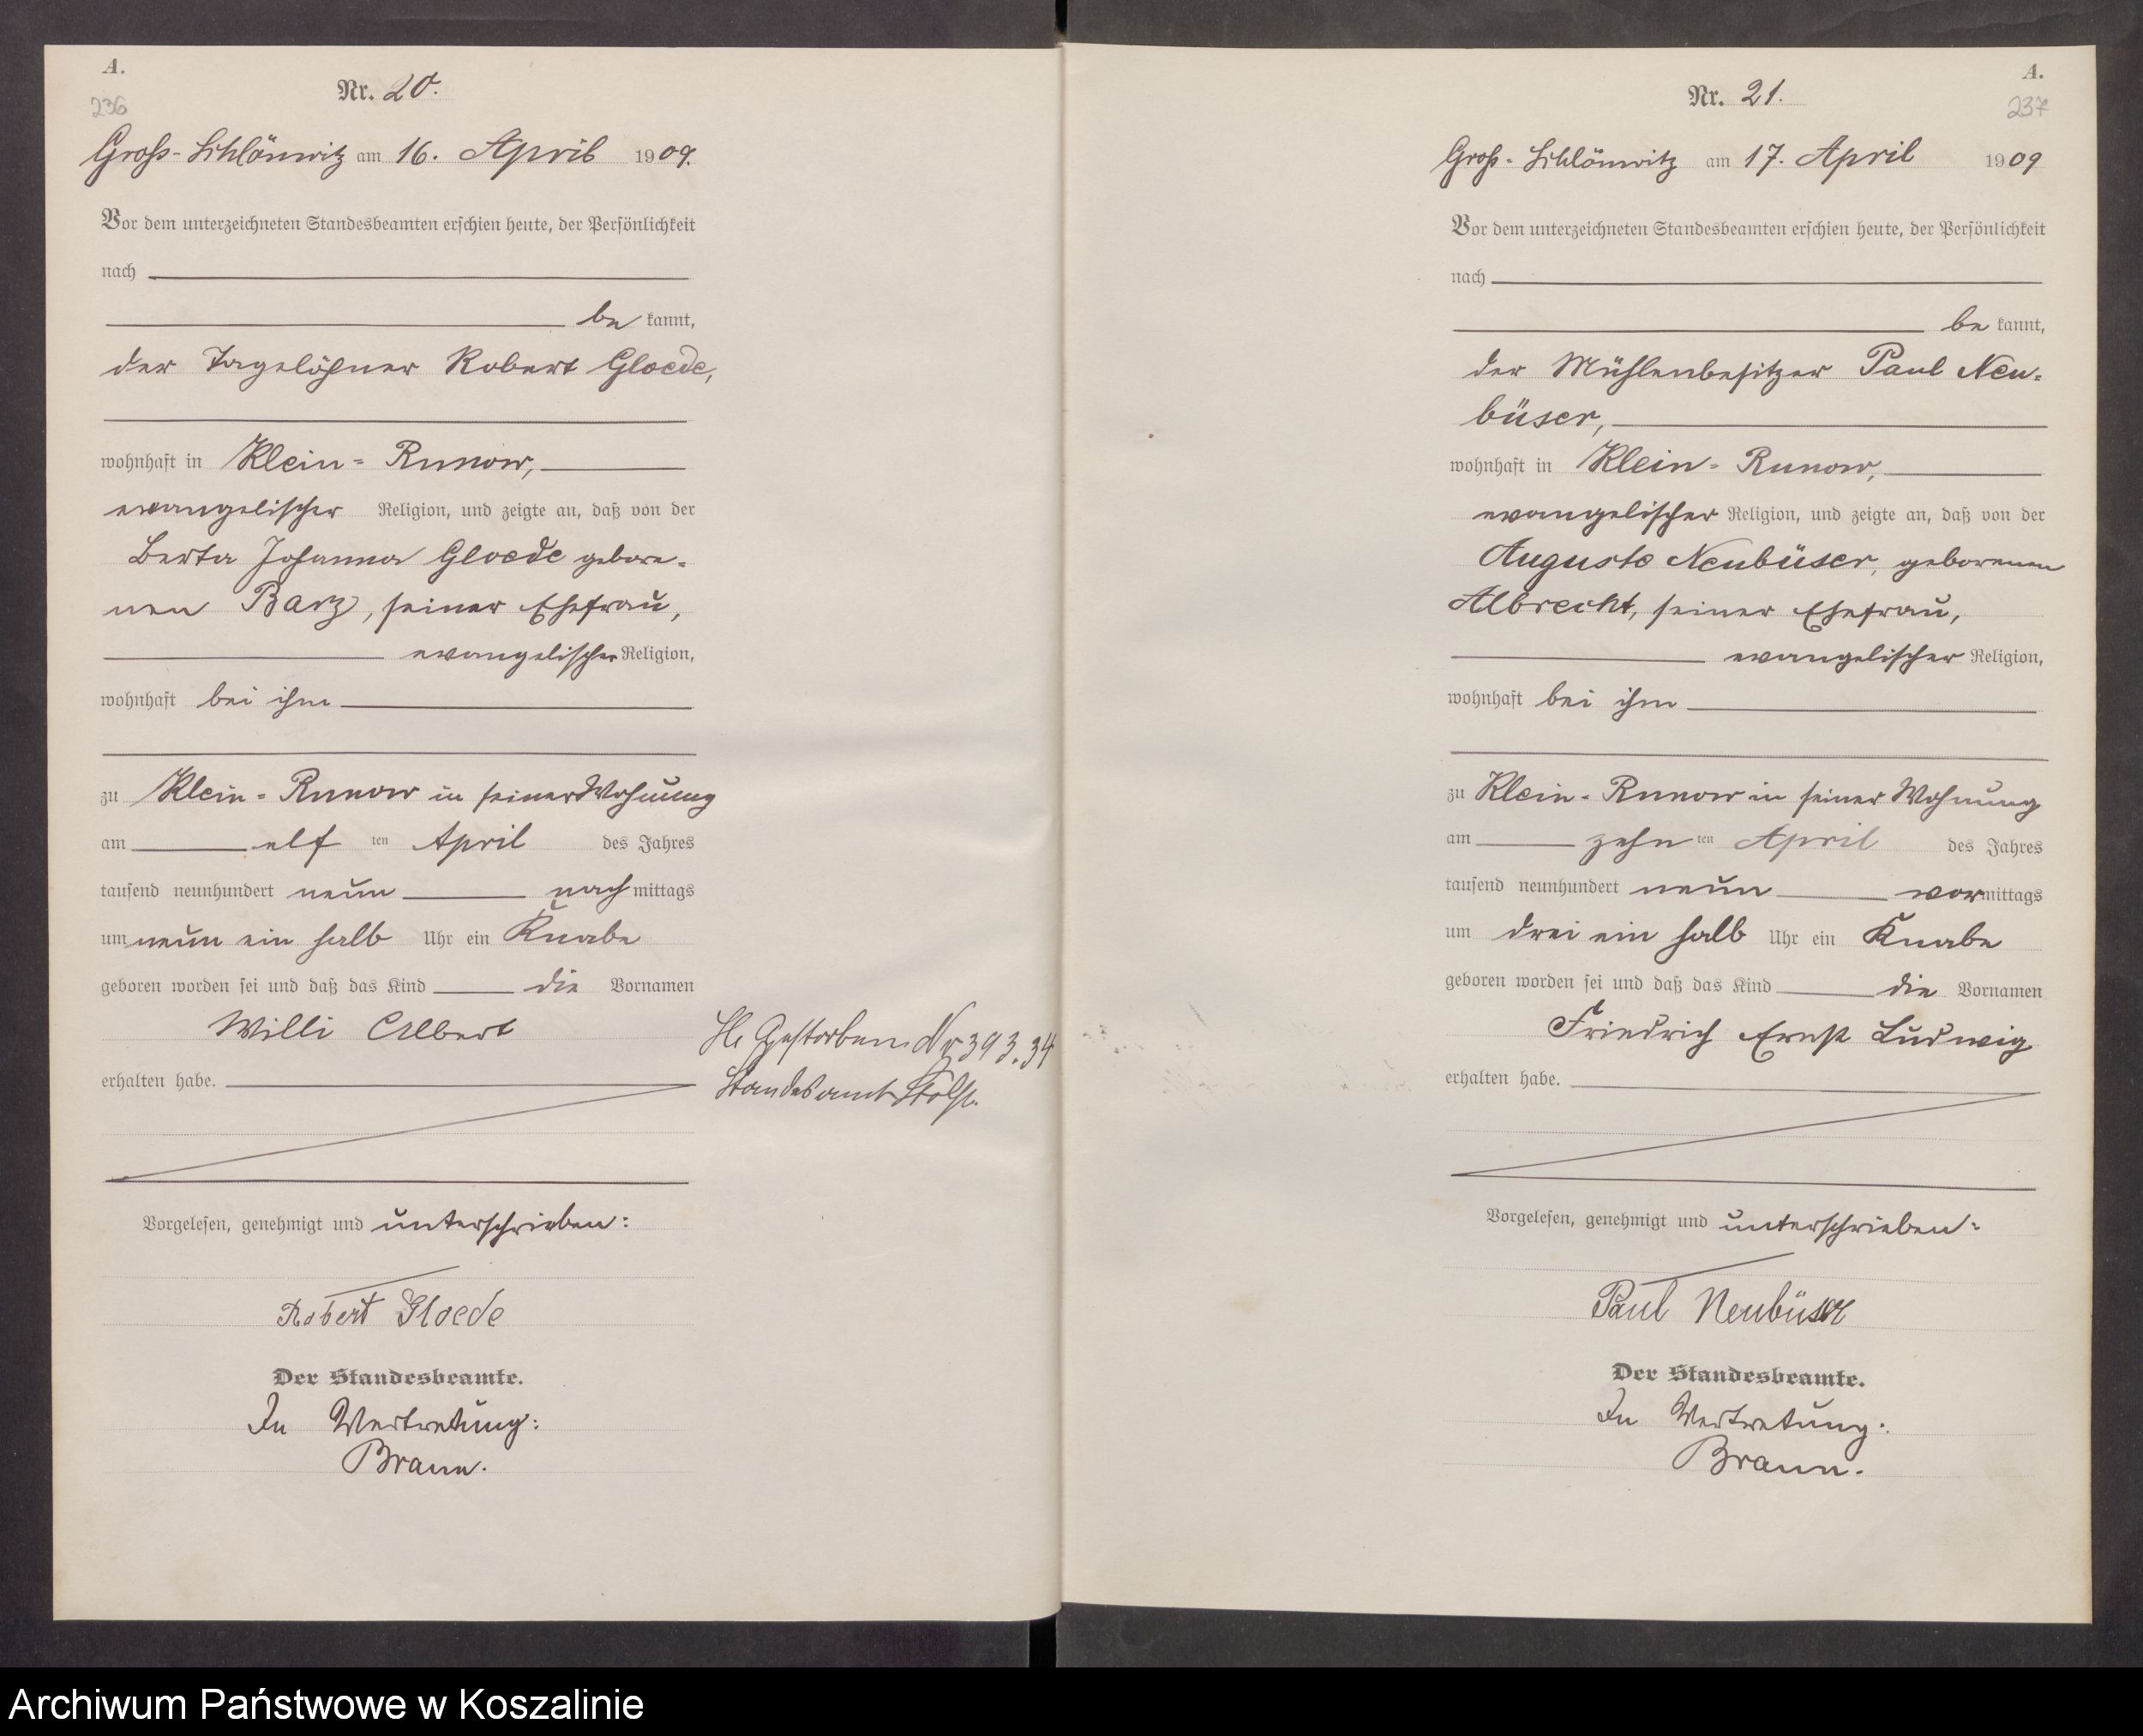 A.
236
Nr. 20.
Groß-Schlönwitz am 16. April 1909.
Vor dem unterzeichneten Standesbeamten erschien heute, der Persönlichkeit
nach
be kannt,
der Tagelöhner Robert Gloede,
wohnhaft in Klein-Runow,
evangelischer Religion, und zeigte an, daß von der
Berta Johanna Gloede gebore-
nen Barz, seiner Ehefrau,
evangelischer Religion,
wohnhaft bei ihm
zu Klein-Runow in seiner Wohnung
am elf ten April des Jahres
tausend neunhundert neun nach mittags
um neun ein halb Uhr ein Knabe
geboren worden sei und daß das Kind die Vornamen
Willi Albert
erhalten habe.
Gestorben Nr 393.34
Standesamt Stolp.
Vorgelesen, genehmigt und unterschrieben:
Robert Gloede
Der Standesbeamte.
In Vertretung:
Braun.
A.
237
Nr. 21.
Groß-Schlönwitz am 17. April 1909
Vor dem unterzeichneten Standesbeamten erschien heute, der Persönlichkeit
nach
be kannt,
der Mühlenbesitzer Paul Neu-
büser,
wohnhaft in Klein-Runow,
evangelischer Religion, und zeigte an, daß von der
Auguste Neubüser, geborenen
Albrecht, seiner Ehefrau,
evangelischer Religion,
wohnhaft bei ihm
zu Klein-Runow in seiner Wohnung
am zehn ten April des Jahres
tausend neunhundert neun vor mittags
um drei ein halb Uhr ein Knabe
geboren worden sei und daß das Kind die Vornamen
Friedrich Ernst Ludwig
erhalten habe.
Vorgelesen, genehmigt und unterschrieben:
Paul Neubüser
Der Standesbeamte.
In Vertretung:
Braun.
Archiwum Państwowe w Koszalinie